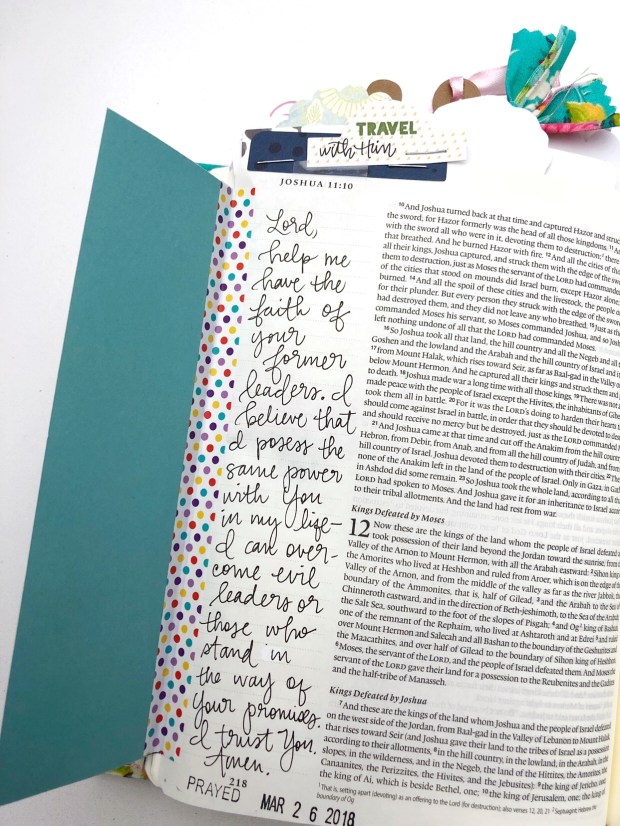 TRAVEL
with Him
JOSHUA 11:10
Lord,
help me
have the
faith of
your
former
leaders. I
believe that
I posess the
same power
with You
in my life-
I can over-
come evil
leaders or
those who
stand in
the way of
Your promises.
I trust You.
Amen.
PRAYED
MAR 2 6 2018
10 And Joshua turned back at that time and captured Hazor and struc
the sword, for Hazor formerly was the head of all those kingdoms. 11
with the sword all who were in it, devoting them to destruction; there
that breathed. And he burned Hazor with fire. 12 And all the cities of
all their kings, Joshua captured, and struck them with the edge of the
them to destruction, just as Moses the servant of the LORD had commanded
of the cities that stood on mounds did Israel burn, except Hazor alone;
burned. 14 And all the spoil of these cities and the livestock, the people
for their plunder. But every person they struck with the edge of the sword
had destroyed them, and they did not leave any who breathed. 15 Just as the
commanded Moses his servant, so Moses commanded Joshua, and so Josh
left nothing undone of all that the LORD had commanded Moses.
16 So Joshua took all that land, the hill country and all the Negeb and all
Goshen and the lowland and the Arabah and the hill country of Israel and
17 from Mount Halak, which rises toward Seir, as far as Baal-gad in the Valley of
below Mount Hermon. And he captured all their kings and struck them and
to death. 18 Joshua made war a long time with all those kings. 19 There was not
made peace with the people of Israel except the Hivites, the inhabitants of Gibe
took them all in battle. 20 For it was the LORD's doing to harden their hearts
should come against Israel in battle, in order that they should be devoted to
and should receive no mercy but be destroyed, just as the LORD commanded
21 And Joshua came at that time and cut off the Anakim from the hill country,
Hebron, from Debir, from Anab, and from all the hill country of Judah, and from
hill country of Israel. Joshua devoted them to destruction with their cities. 22
none of the Anakim left in the land of the people of Israel. Only in Gaza, in Gath
in Ashdod did some remain. 23 So Joshua took the whole land, according to all
LORD had spoken to Moses. And Joshua gave it for an inheritance to Israel
to their tribal allotments. And the land had rest from war.
Kings Defeated by Moses
12 Now these are the kings of the land whom the people of Israel defeated
took possession of their land beyond the Jordan toward the sunrise, from
Valley of the Arnon to Mount Hermon, with all the Arabah eastward: 2 Sihon king
the Amorites who lived at Heshbon and ruled from Aroer, which is on the edge of
Valley of the Arnon, and from the middle of the valley as far as the river Jabbok,
boundary of the Ammonites, that is, half of Gilead, 3 and the Arabah to the Sea
Chinneroth eastward, and in the direction of Beth-jeshimoth, to the Sea of the Arabah
the Salt Sea, southward to the foot of the slopes of Pisgah; 4 and Og king of Bashan,
one of the remnant of the Rephaim, who lived at Ashtaroth and at Edrei 5 and ruled
over Mount Hermon and Salecah and all Bashan to the boundary of the Geshurites and
the Maacathites, and over half of Gilead to the boundary of Sihon king of Heshbon.
6 Moses, the servant of the LORD, and the people of Israel defeated them. And Moses the
servant of the LORD gave their land for a possession to the Reubenites and the Gadites
and the half-tribe of Manasseh.
Kings Defeated by Joshua
7 And these are the kings of the land whom Joshua and the people of Israel defeated
on the west side of the Jordan, from Baal-gad in the Valley of Lebanon to Mount Halak,
that rises toward Seir (and Joshua gave their land to the tribes of Israel as a possession
according to their allotments, 8 in the hill country, in the lowland, in the Arabah, in the
slopes, in the wilderness, and in the Negeb, the land of the Hittites, the Amorites, the
Canaanites, the Perizzites, the Hivites, and the Jebusites): 9 the king of Jericho, one;
the king of Ai, which is beside Bethel, one; 10 the king of Jerusalem, one; the king
1 That is, setting apart (devoting) as an offering to the Lord (for destruction); also verses 12, 20, 21 2 Septuagint; Hebrew the
boundary of Og
218